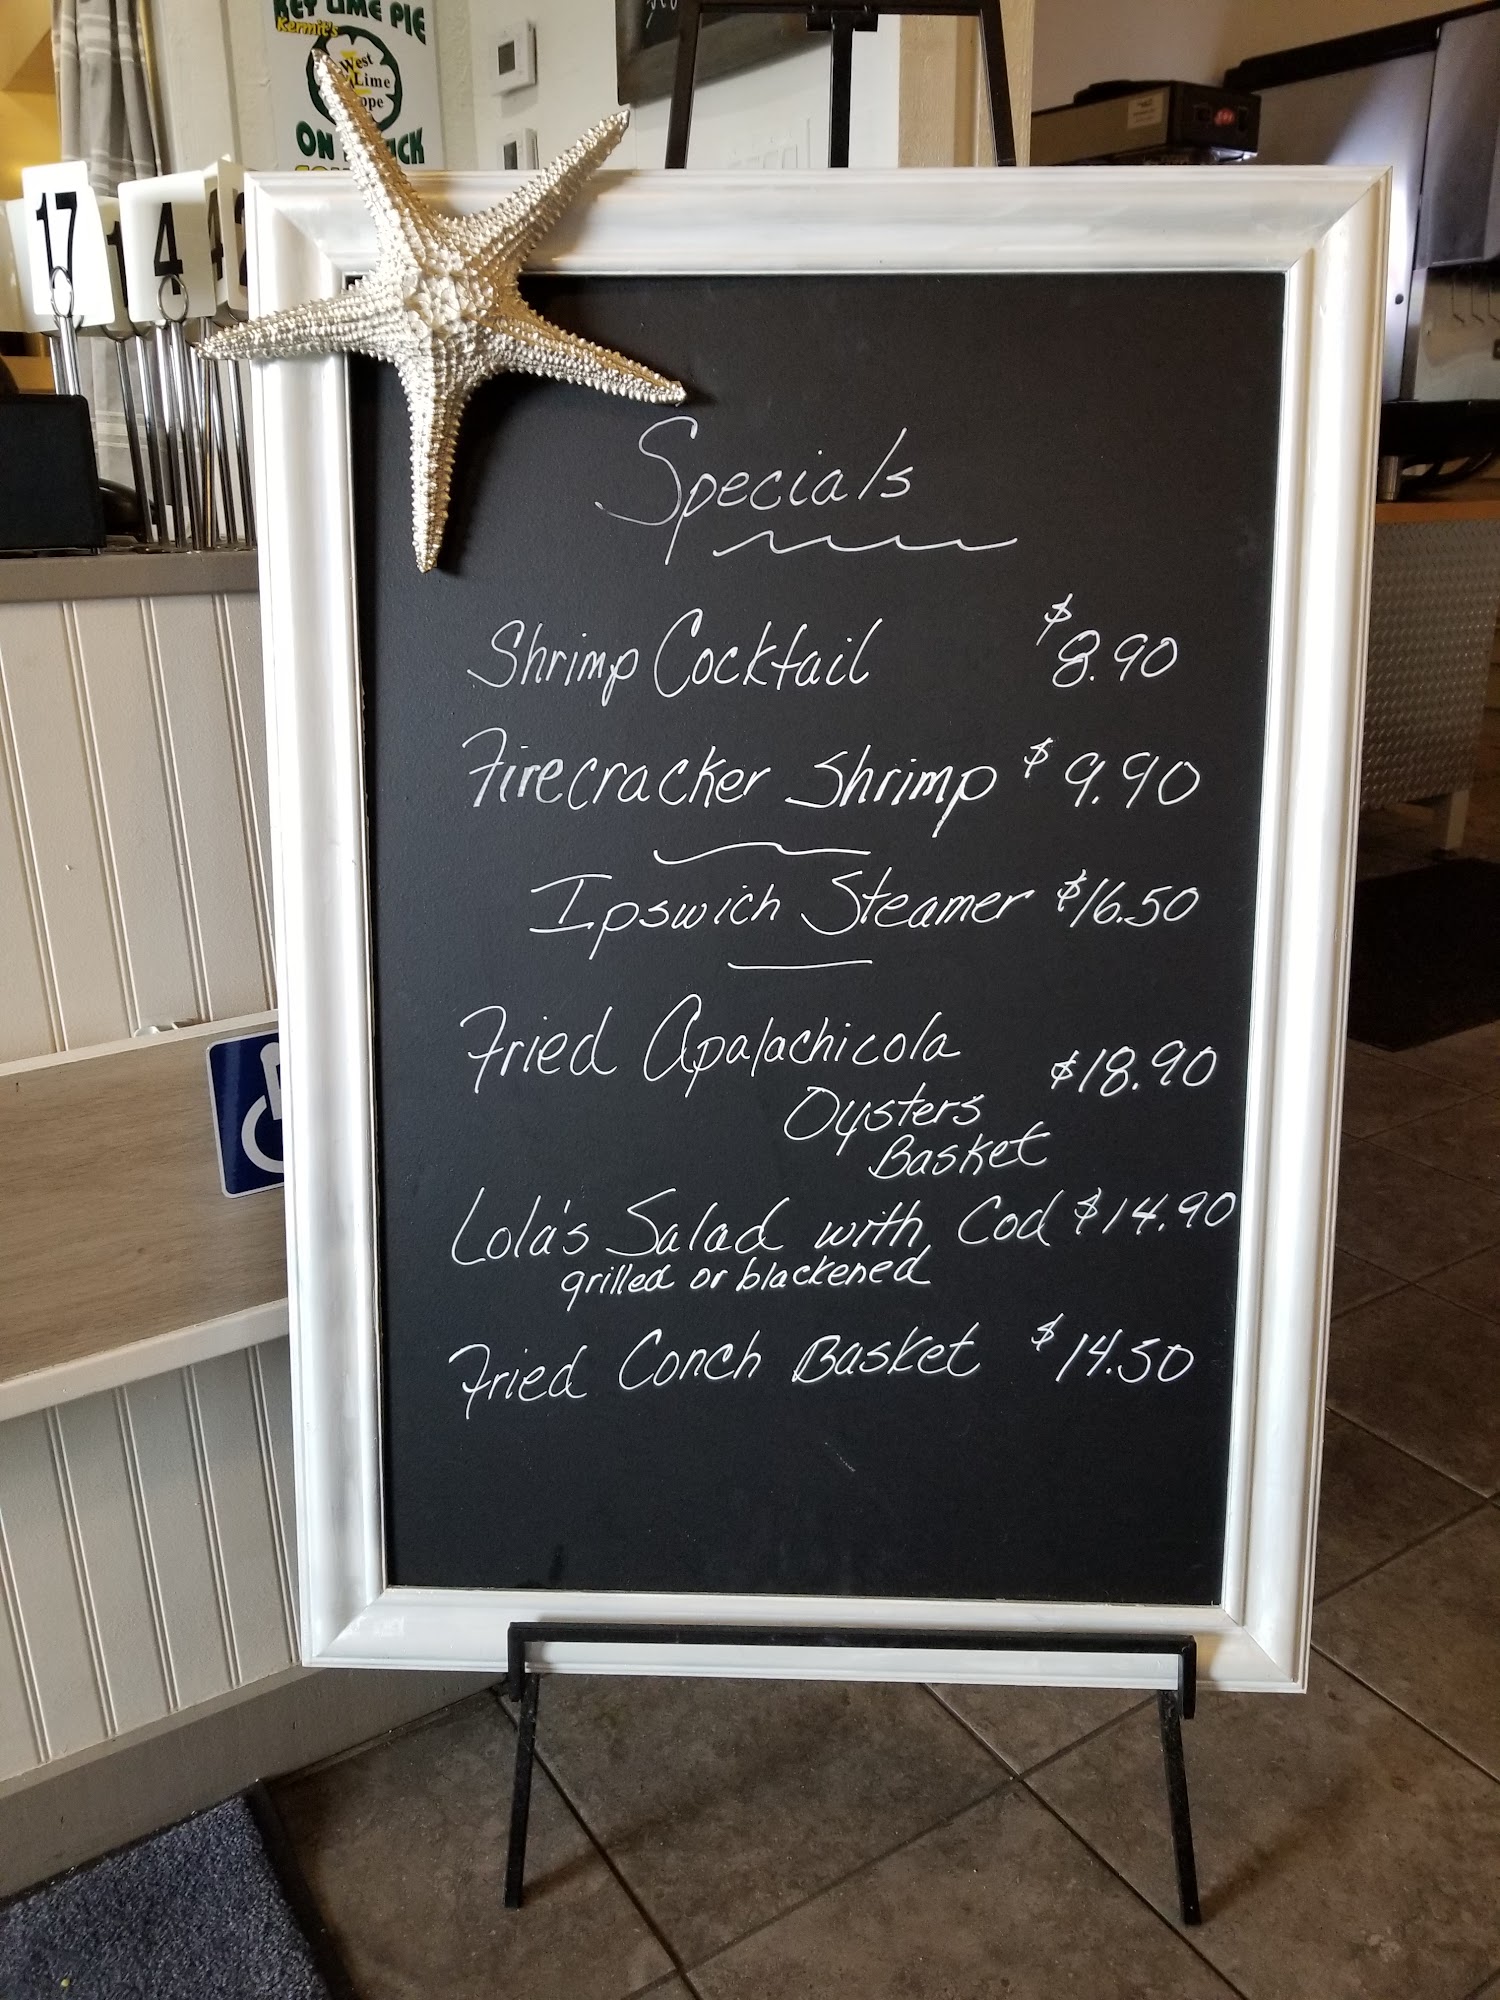 KEY LIME PIE
Kermit's
West
Lime
ON
17
4
Specials
Shrimp Cocktail $8.90
Firecracker Shrimp $9.90
Ipswich Steamer $16.50
Fried Apalachicola $18.90
Oysters
Basket
Lola's Salad with Cod $14.90
grilled or blackened
Fried Conch Basket $14.50